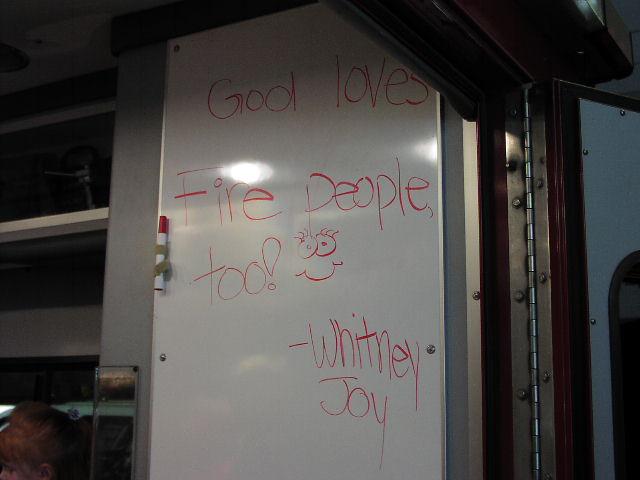 Good loves
Fire people,
too!
-Whitney
Joy